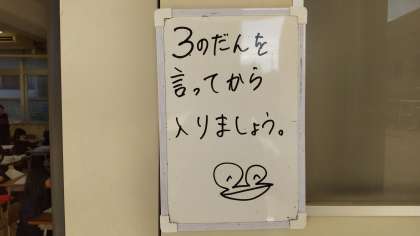 3のだんを
言ってから
入りましょう。